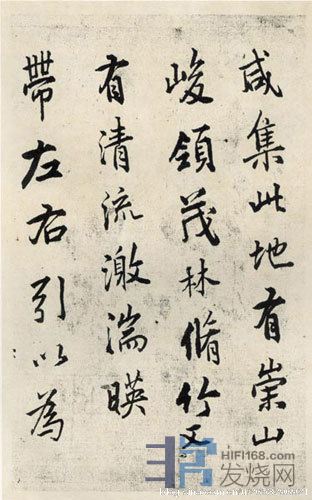 咸集此地有崇山
峻領茂林脩竹又
有清流激湍暎
帶左右引以為
非常
HIFI168.com
发烧网